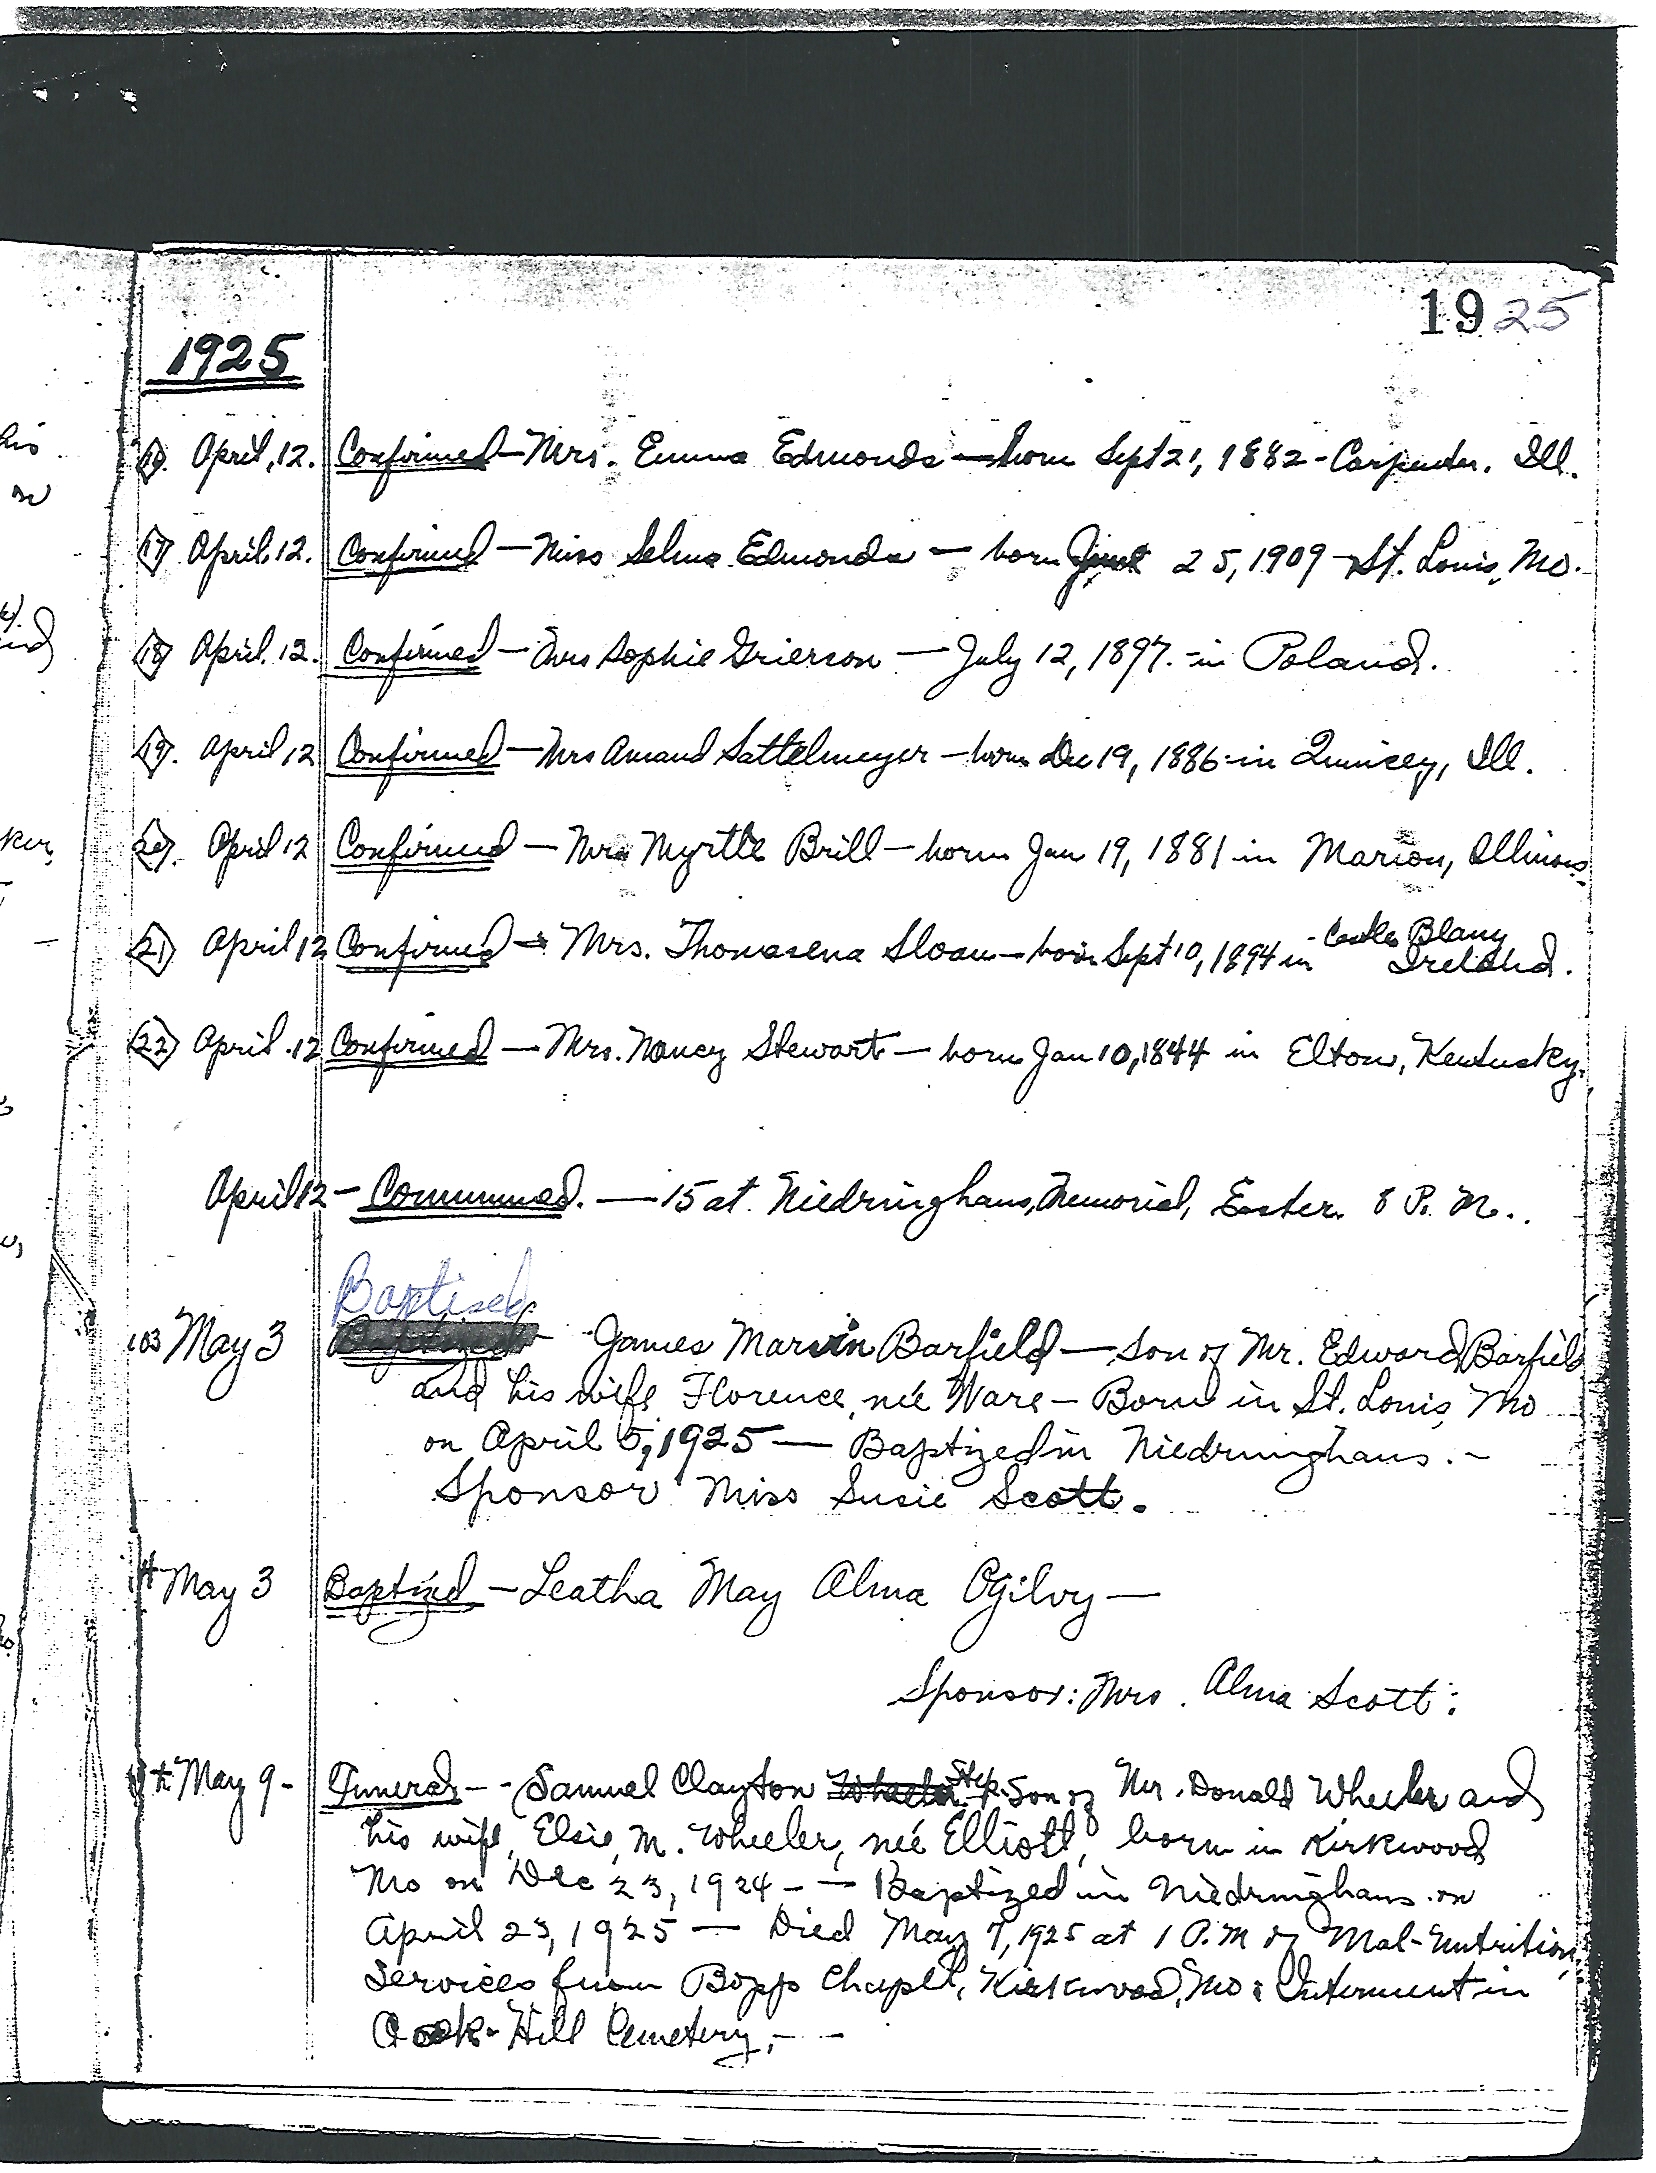 1925
1925
his
16 April, 12. Confirmed — Mrs. Emma Edmonds — born Sept 21, 1882 - Carpenter. Ill.
17 April 12. Confirmed — Miss Selma Edmonds — born 25, 1909 - St. Louis, Mo.
18 April. 12. Confirmed — Mrs Sophie Grierson — July 12, 1897. - in Poland.
19. April 12 Confirmed — Mrs Amand Sattelmeyer — born Dec 19, 1886 - in Quincey, Ill.
20. April 12 Confirmed — Mrs Myrtle Brill — born Jan 19, 1881 in Marion, Illinois.
21 April 12 Confirmed — Mrs. Thomasena Sloan — born Sept 10, 1894 in - Castle Blany
Ireland.
22 April. 12 Confirmed — Mrs. Nancy Stewart — born Jan 10, 1844 in Elton, Kentucky.
April 12 — Communed. — 15 at Niedringhaus, Memorial, Easter. 8 P. M..
Baptised
103 May 3 James Marvin Barfield — Son of Mr. Edward Barfield
and his wife Florence, neé Ware — Born in St. Louis, Mo
on April 5, 1925 — Baptized in Niedringhaus. -
Sponsor Miss Susie Scott.
May 3 Baptized — Leatha May Alma Ogilvy —
Sponsor: Mrs. Alma Scott:
May 9 - Funeral - - Samuel Clayton Wheeler Step-Son of Mr. Donald Wheeler and
his wife, Elsie, M. Wheeler, neé Elliott, born in Kirkwood
Mo on Dec 23, 1924 - — Baptized in Niedringhaus on
April 23, 1925 — Died May 7, 1925 at 1 P.M of Mal-nutrition,
Services from Bopp Chapel, Kirkwood, Mo: Interment in
Hill Cemetery, - -